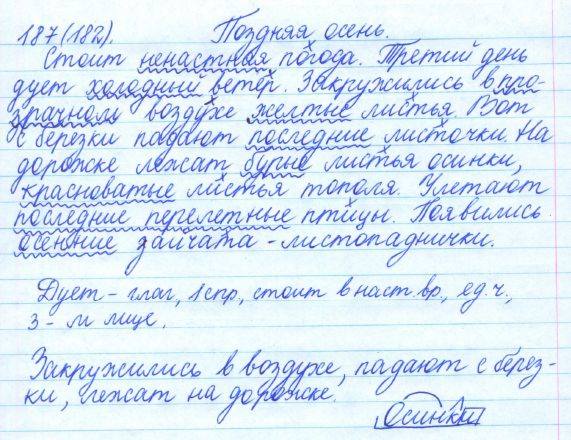 187(182). Поздняя осень.
Стоит ненастная погода. Третий день
дует холодный ветер. Закружились в про-
зрачном воздухе желтые листья. Вот
с березки падают последние листочки. На
дорожке лежат бурые листья осинки,
красноватые листья тополя. Улетают
последние перелетные птицы. Появились
осенние зайчата - листопаднички.
Дует - глаг, 1 спр, стоит в наст. вр, ед. ч.,
3 - м лице.
Закружились в воздухе, падают с берез-
ки, лежат на дорожке.
Осинки